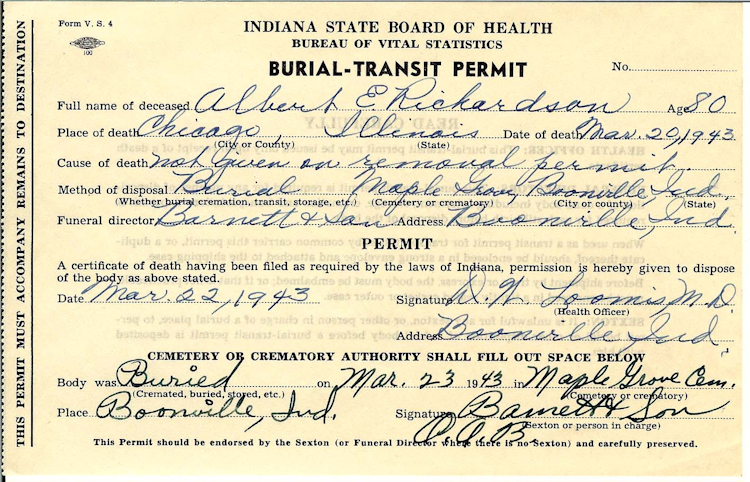 Form V. S. 4
100
INDIANA STATE BOARD OF HEALTH
BUREAU OF VITAL STATISTICS
BURIAL-TRANSIT PERMIT
No.
Full name of deceased Albert E. Richardson Age 80
Place of death Chicago, Illinois Date of death Mar. 20, 1943
(City or County) (State)
Cause of death not given on removal permit.
Method of disposal Burial Maple Grove, Boonville, Ind.
(Whether burial cremation, transit, storage, etc.) (Cemetery or crematory) (City or county) (State)
Funeral director Barnett & Son Address Boonville, Ind.
PERMIT
A certificate of death having been filed as required by the laws of Indiana, permission is hereby given to dispose
of the body as above stated.
Date Mar 22, 1943 Signature D. W. Loomis, M. D.
(Health Officer)
Address Boonville Ind.
CEMETERY OR CREMATORY AUTHORITY SHALL FILL OUT SPACE BELOW
Body was Buried on Mar. 23 1943 in Maple Grove Cem.
(Cremated, buried, stored, etc.) (Cemetery or crematory)
Place Boonville, Ind. Signature Barnett & Son
(Sexton or person in charge)
O.O.B.
This Permit should be endorsed by the Sexton (or Funeral Director where there is no Sexton) and carefully preserved.
THIS PERMIT MUST ACCOMPANY REMAINS TO DESTINATION